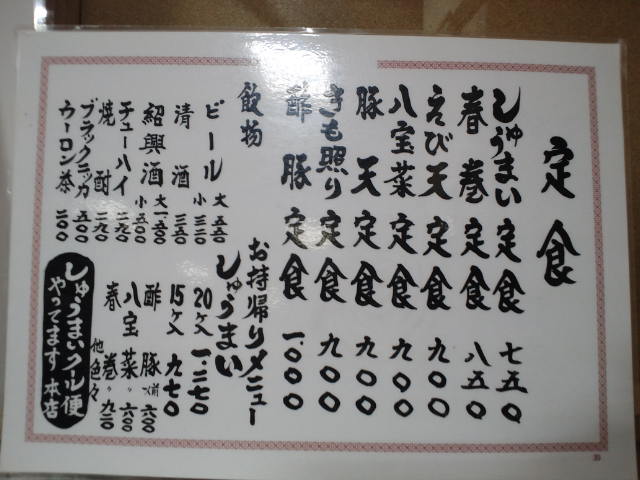 定食
しゅうまい定食 七五〇
春巻定食 八五〇
えび天定食 九〇〇
八宝菜定食 九〇〇
豚天定食 九〇〇
きも照り定食 九〇〇
酢豚定食 一、〇〇〇
飲物
ビール 大 五五〇
小 三三〇
清酒 三五〇
紹興酒 大一、五〇〇
小 五〇〇
チューハイ 二九〇
焼酎 二九〇
ブラックニッカ 五〇〇
ウーロン茶 二〇〇
お持帰りメニュー
しゅうまい
20ヶ入 一、二七〇
15ヶ入 九七〇
酢豚(一人前) 六〇〇
八宝菜〃 六〇〇
春巻〃 九二〇
他色々
しゅうまいクール便
やってます 本店